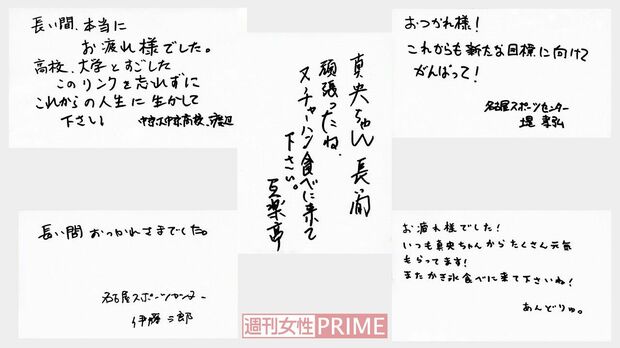 長い間、本当に
お疲れ様でした。
高校、大学とすごした
このリンクを忘れずに
これからの人生に生かして
下さい。 中京大中京高校、渡辺
真央ちゃん 長い間
頑張ったね、
又チャーハン食べに来て
下さい。
百楽亭
おつかれ様!
これからも新たな目標に向けて
がんばって!
名古屋スポーツセンター
堤 孝弘
長い間 おつかれさまでした。
名古屋スポーツセンター
伊藤 三郎
お疲れ様でした!
いつも真央ちゃんからたくさん元気
もらってます!
またかき氷食べに来て下さいね!
あんどりゅ。
週刊女性PRIME